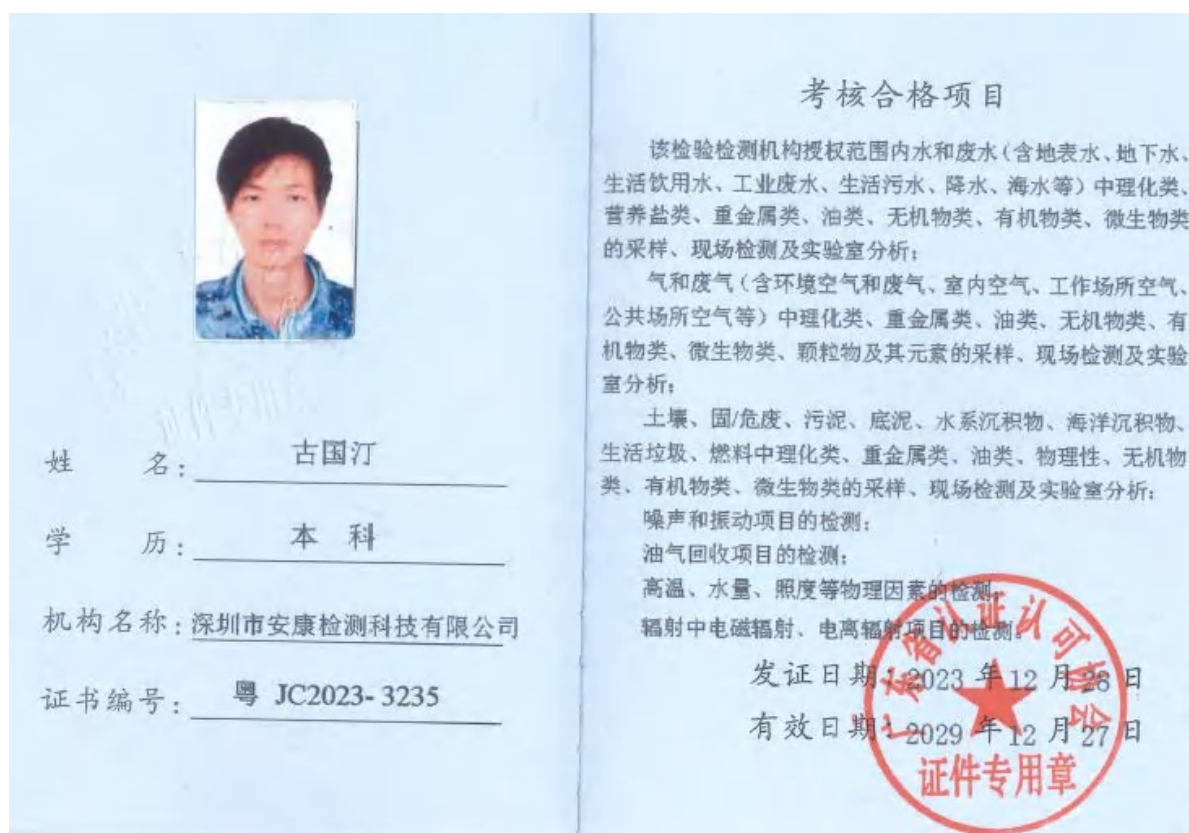 姓 名：古国汀
学 历：本 科
机构名称：深圳市安康检测科技有限公司
证书编号：粤 JC2023- 3235
考核合格项目
该检验检测机构授权范围内水和废水（含地表水、地下水、
生活饮用水、工业废水、生活污水、降水、海水等）中理化类、
营养盐类、重金属类、油类、无机物类、有机物类、微生物类
的采样、现场检测及实验室分析；
气和废气（含环境空气和废气、室内空气、工作场所空气、
公共场所空气等）中理化类、重金属类、油类、无机物类、有
机物类、微生物类、颗粒物及其元素的采样、现场检测及实验
室分析；
土壤、固/危废、污泥、底泥、水系沉积物、海洋沉积物、
生活垃圾、燃料中理化类、重金属类、油类、物理性、无机物
类、有机物类、微生物类的采样、现场检测及实验室分析；
噪声和振动项目的检测；
油气回收项目的检测；
高温、水量、照度等物理因素的检测。
辐射中电磁辐射、电离辐射项目的检测。
发证日期：2023 年 12 月 28 日
有效日期：2029 年 12 月 27 日
广东省认证认可协会
证件专用章